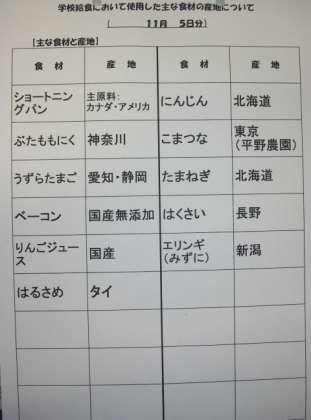 学校給食において使用した主な食材の産地について
( 11月 5日分)
【主な食材と産地】
食 材 産 地 食 材 産 地
ショートニン
グパン
主原料:
カナダ・アメリカ
にんじん
北海道
ぶたももにく
神奈川
こまつな
東京
(平野農園)
うずらたまご
愛知・静岡
たまねぎ
北海道
ベーコン
国産無添加
はくさい
長野
りんごジュー
ス
国産
エリンギ
(みずに)
新潟
はるさめ
タイ